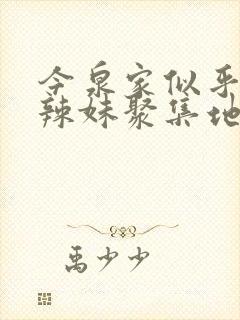 今泉家似乎
辣妹聚集地
禹少少